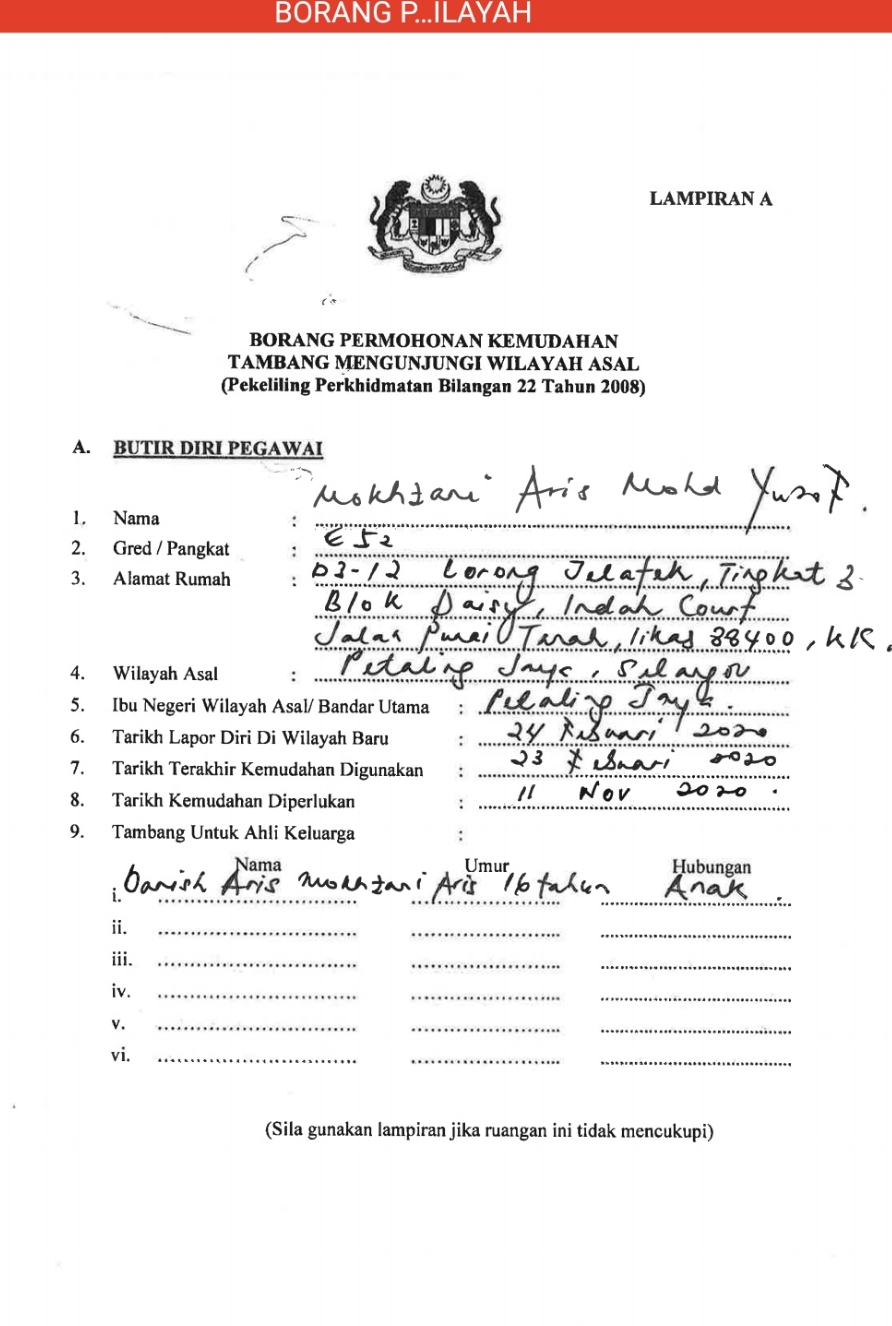 BORANG P...ILAYAH
LAMPIRAN A
BORANG PERMOHONAN KEMUDAHAN
TAMBANG MENGUNJUNGI WILAYAH ASAL
(Pekeliling Perkhidmatan Bilangan 22 Tahun 2008)
A. BUTIR DIRI PEGAWAI
1. Nama : Mokhtari Aris Mohd Yusof.
2. Gred / Pangkat : E52
3. Alamat Rumah : D3-12 Lorong Jelatek, Tingkat 3
Blok Daisy, Indah Court
Jalan Tanah, likas 88400, KK.
4. Wilayah Asal : Petaling Jaya, Selangor
5. Ibu Negeri Wilayah Asal/ Bandar Utama : Petaling Jaya.
6. Tarikh Lapor Diri Di Wilayah Baru : 24 Febuari 2020
7. Tarikh Terakhir Kemudahan Digunakan : 23 Febuari 2020
8. Tarikh Kemudahan Diperlukan : 11 Nov 2020.
9. Tambang Untuk Ahli Keluarga :
Nama Umur Hubungan
i. Danish Aris Mokhtari Aris 16 tahun Anak.
ii.
iii.
iv.
v.
vi.
(Sila gunakan lampiran jika ruangan ini tidak mencukupi)